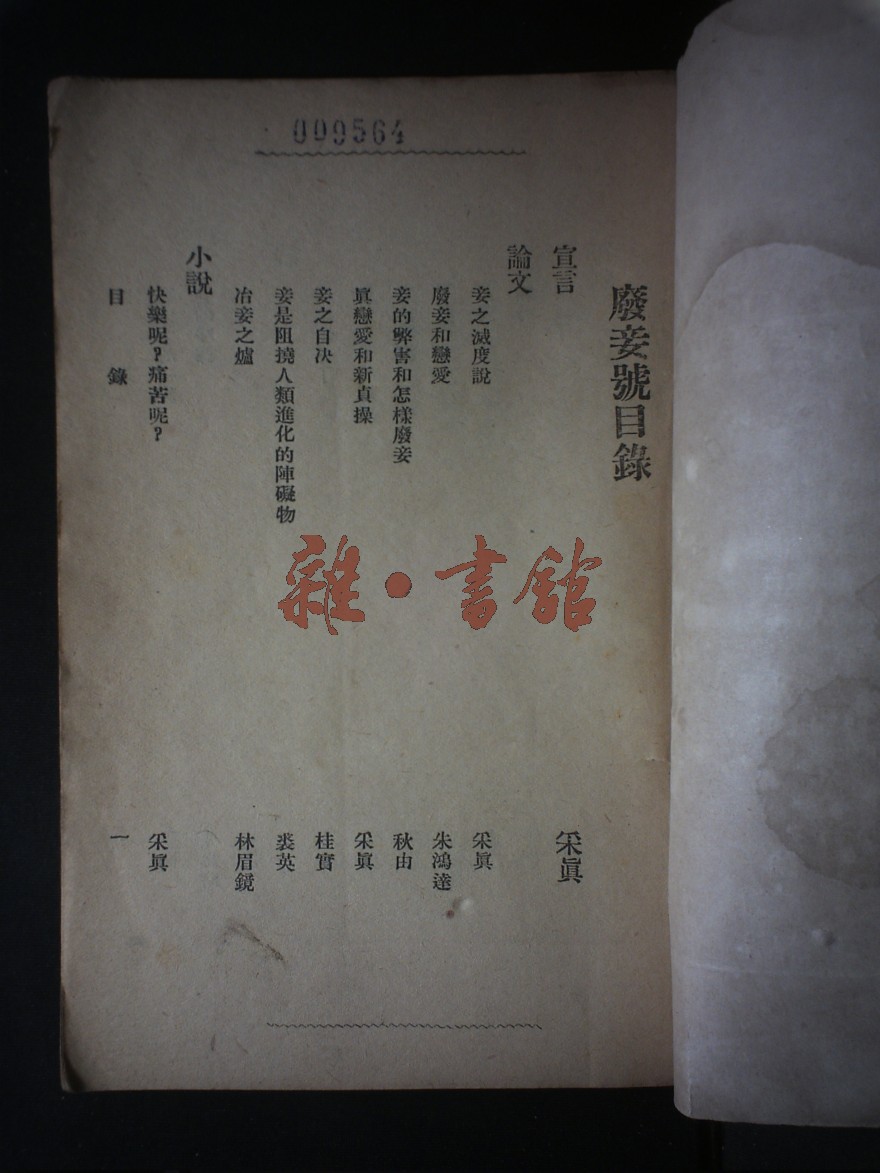 000564
廢妾號目錄
宣言 采眞
論文
妾之滅度說 采眞
廢妾和戀愛 朱鴻達
妾的弊害和怎樣廢妾 秋由
眞戀愛和新貞操 采眞
妾之自决 桂實
妾是阻撓人類進化的陣礙物 裘英
冶妾之爐 林眉鏡
小說
快樂呢?痛苦呢? 采眞
目錄 一
雜·書館